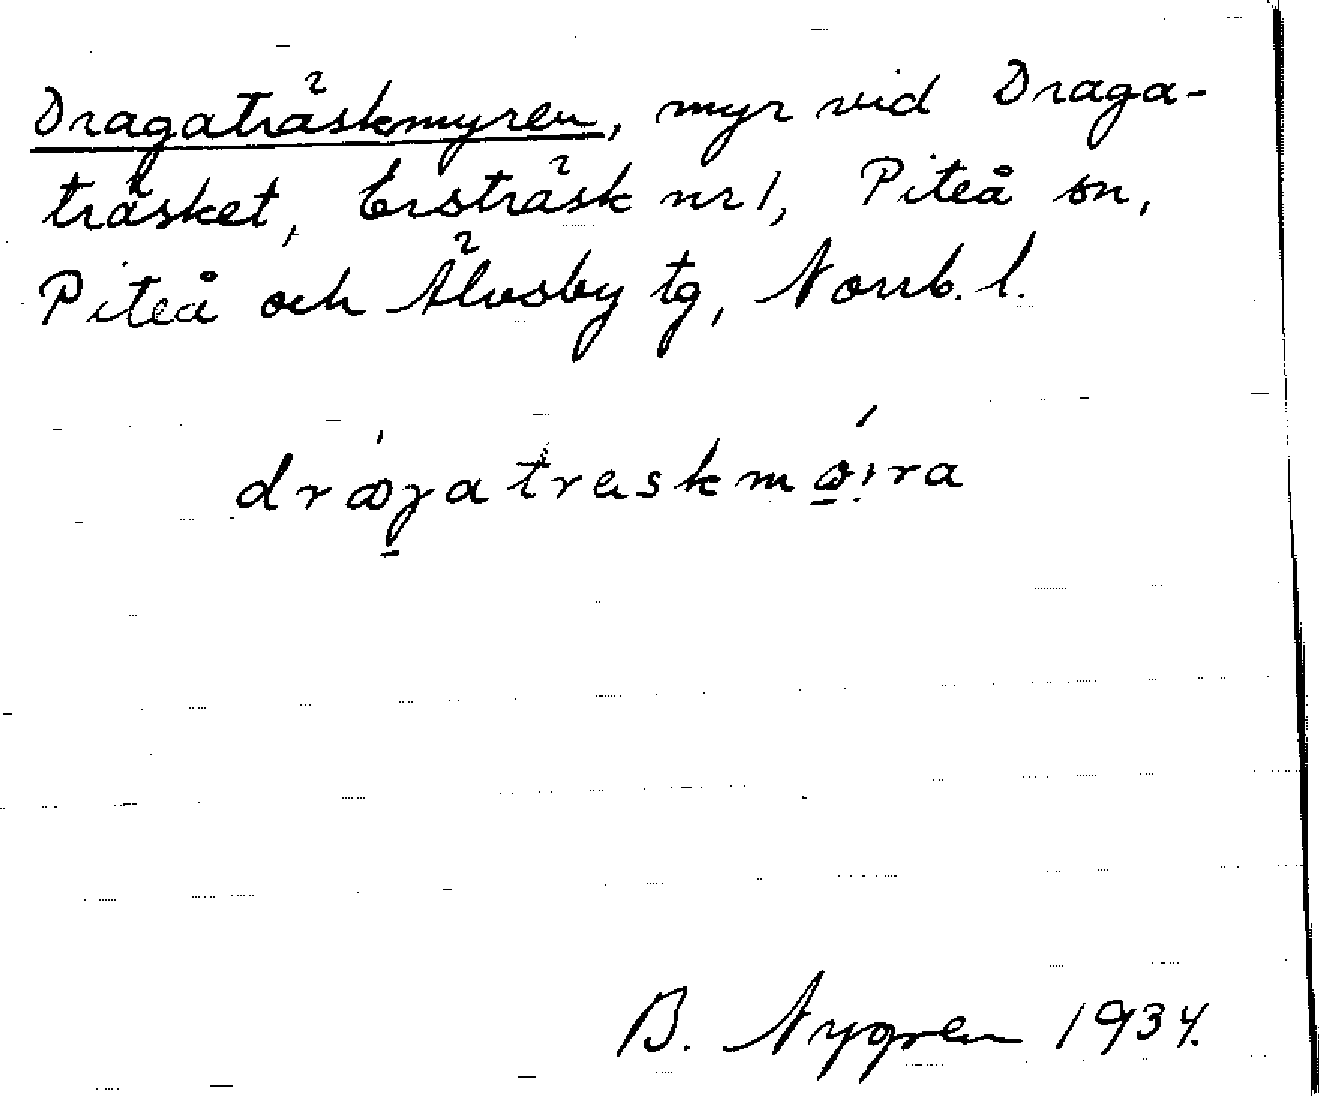 Dragaträskmyren, myr vid Draga-
träsket, Ersträsk nr 1, Piteå sn,
Piteå och Älvsby tg, Norrb. l.
B. Nygren 1934.